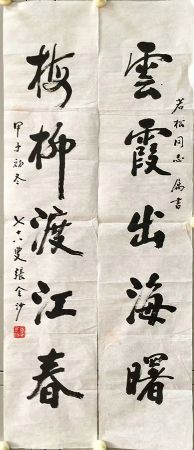 雲霞出海曙
若松同志屬書
梅柳渡江春
甲子初冬
七十八叟張金沙